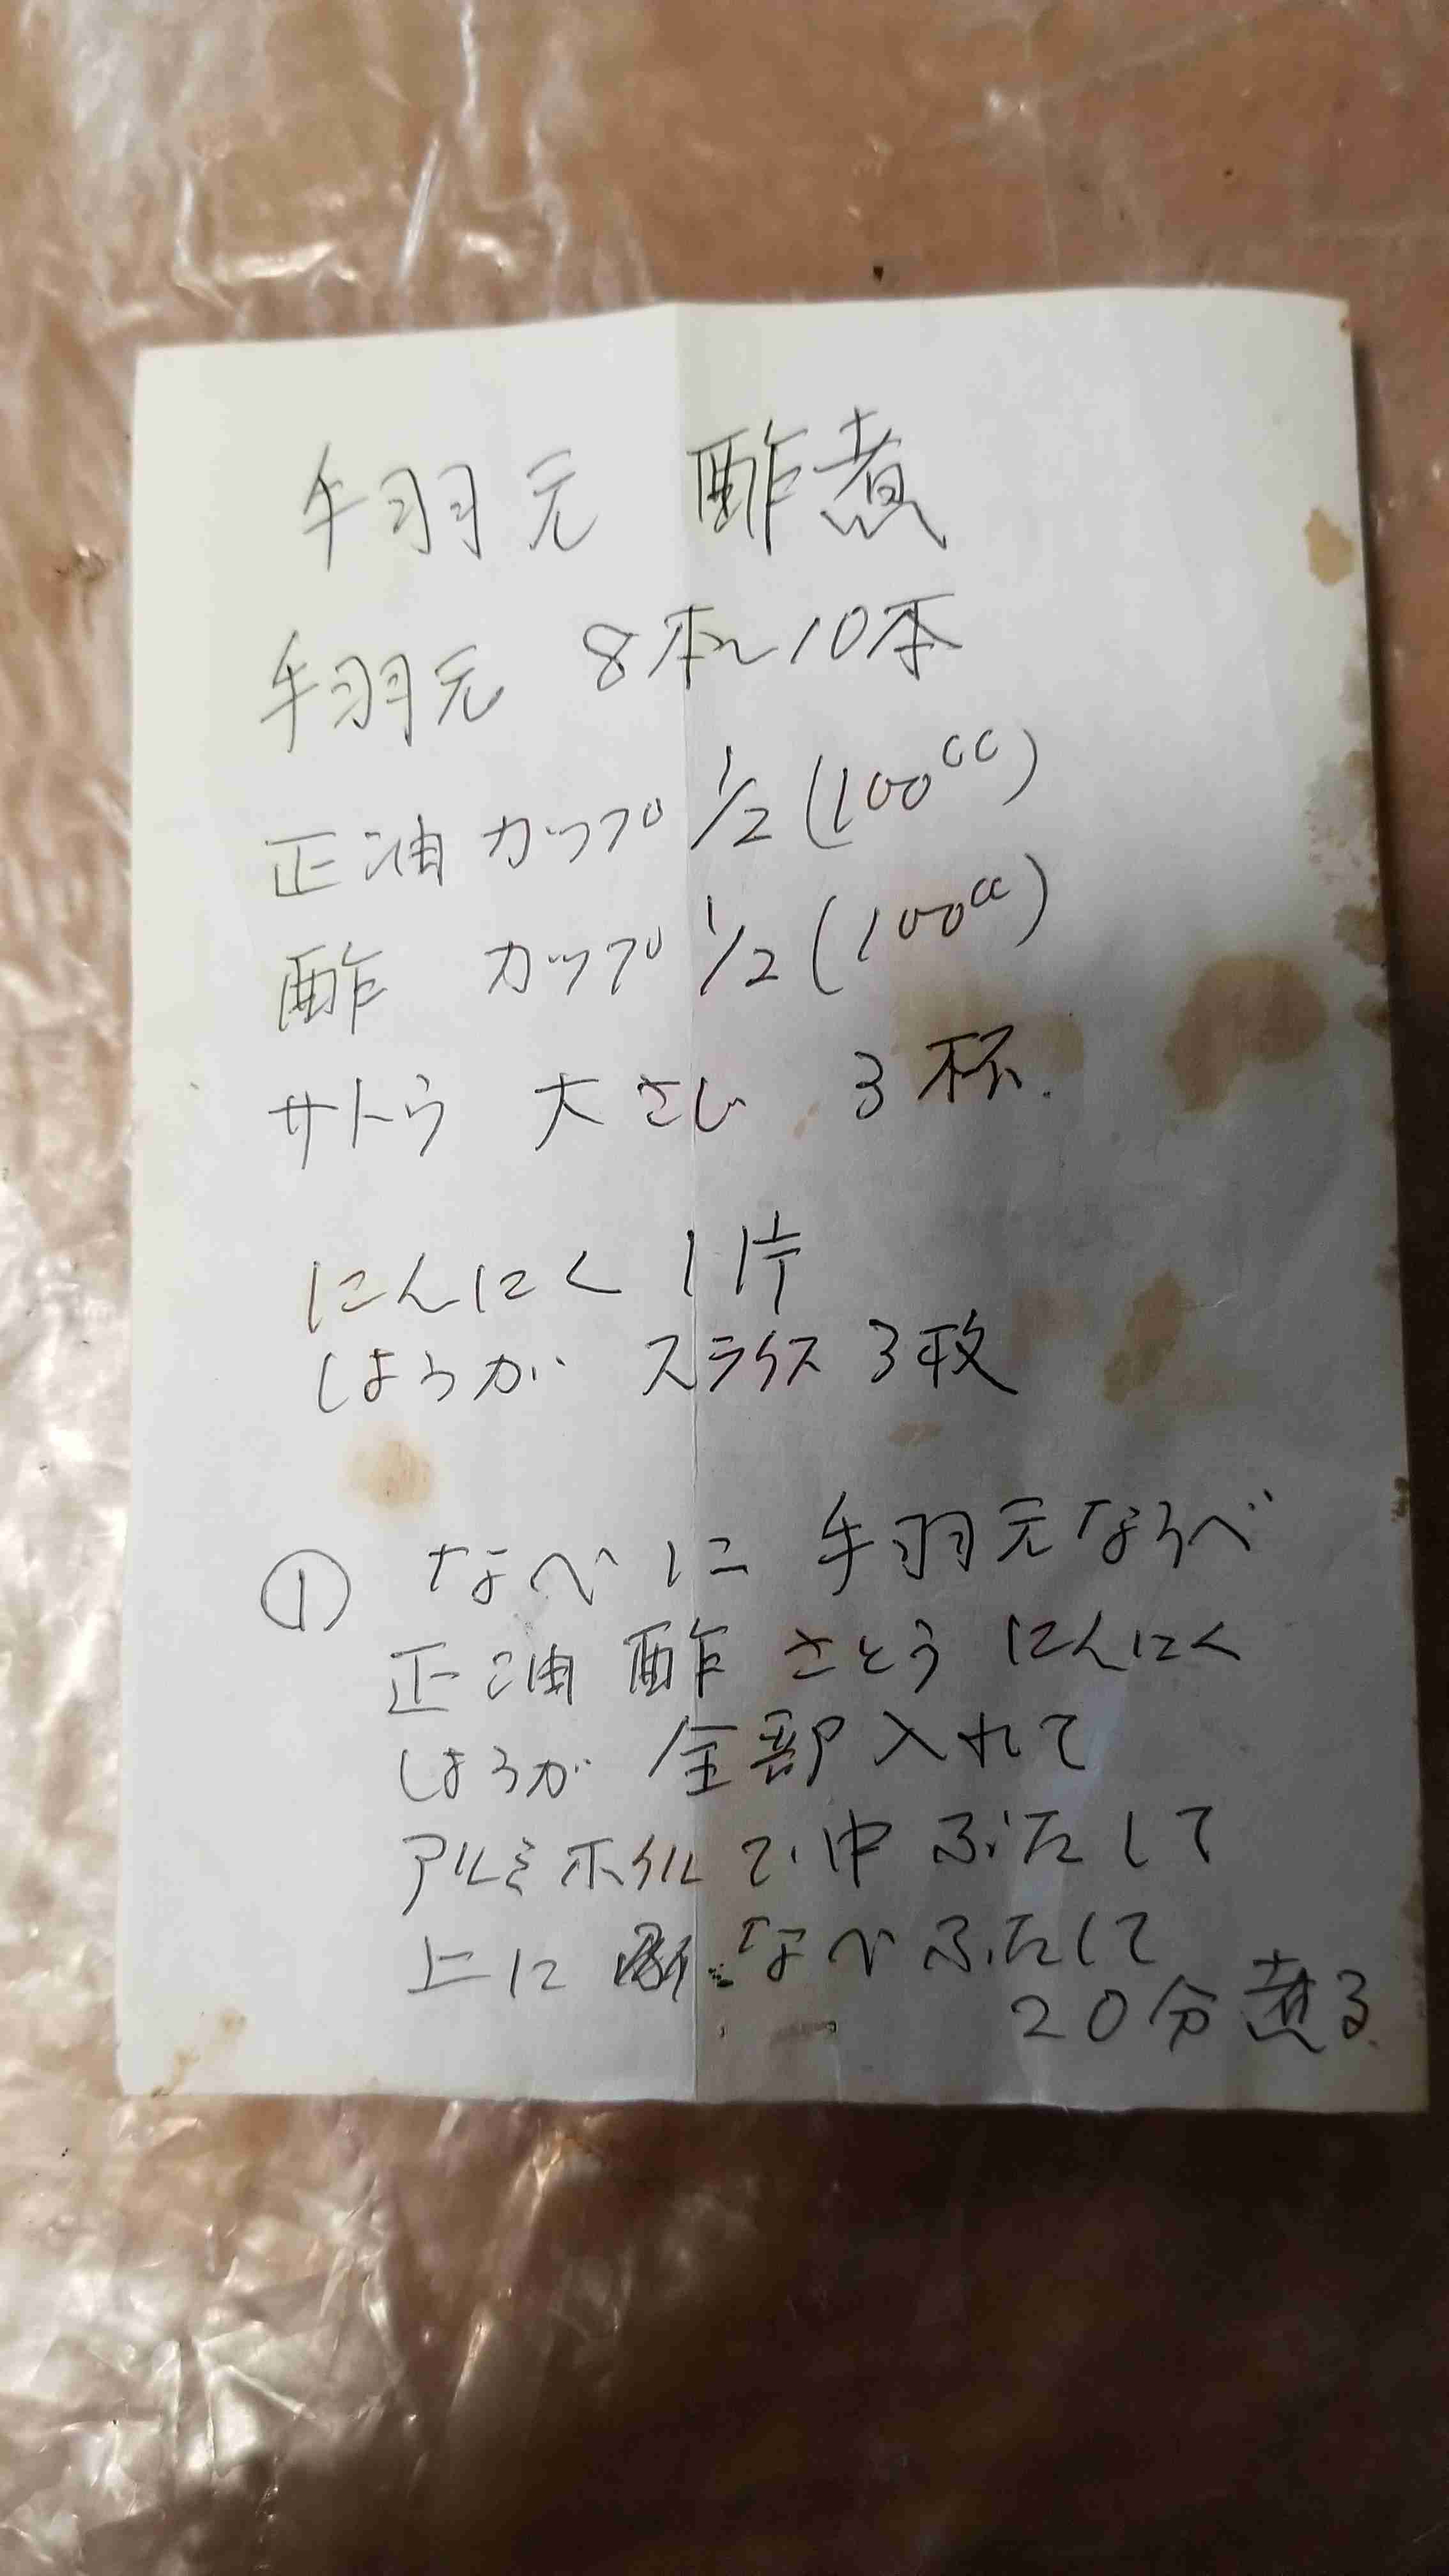 手羽元 酢煮
手羽元 8本〜10本
正油 カップ 1/2 (100cc)
酢 カップ 1/2 (100cc)
サトウ 大さじ 3杯.
にんにく 1片
しょうが スライス 3枚
① なべに 手羽元ならべ
正油 酢 さとう にんにく
しょうが 全部入れて
アルミホイルで中ぶたして
上に なべふたして
20分煮る.